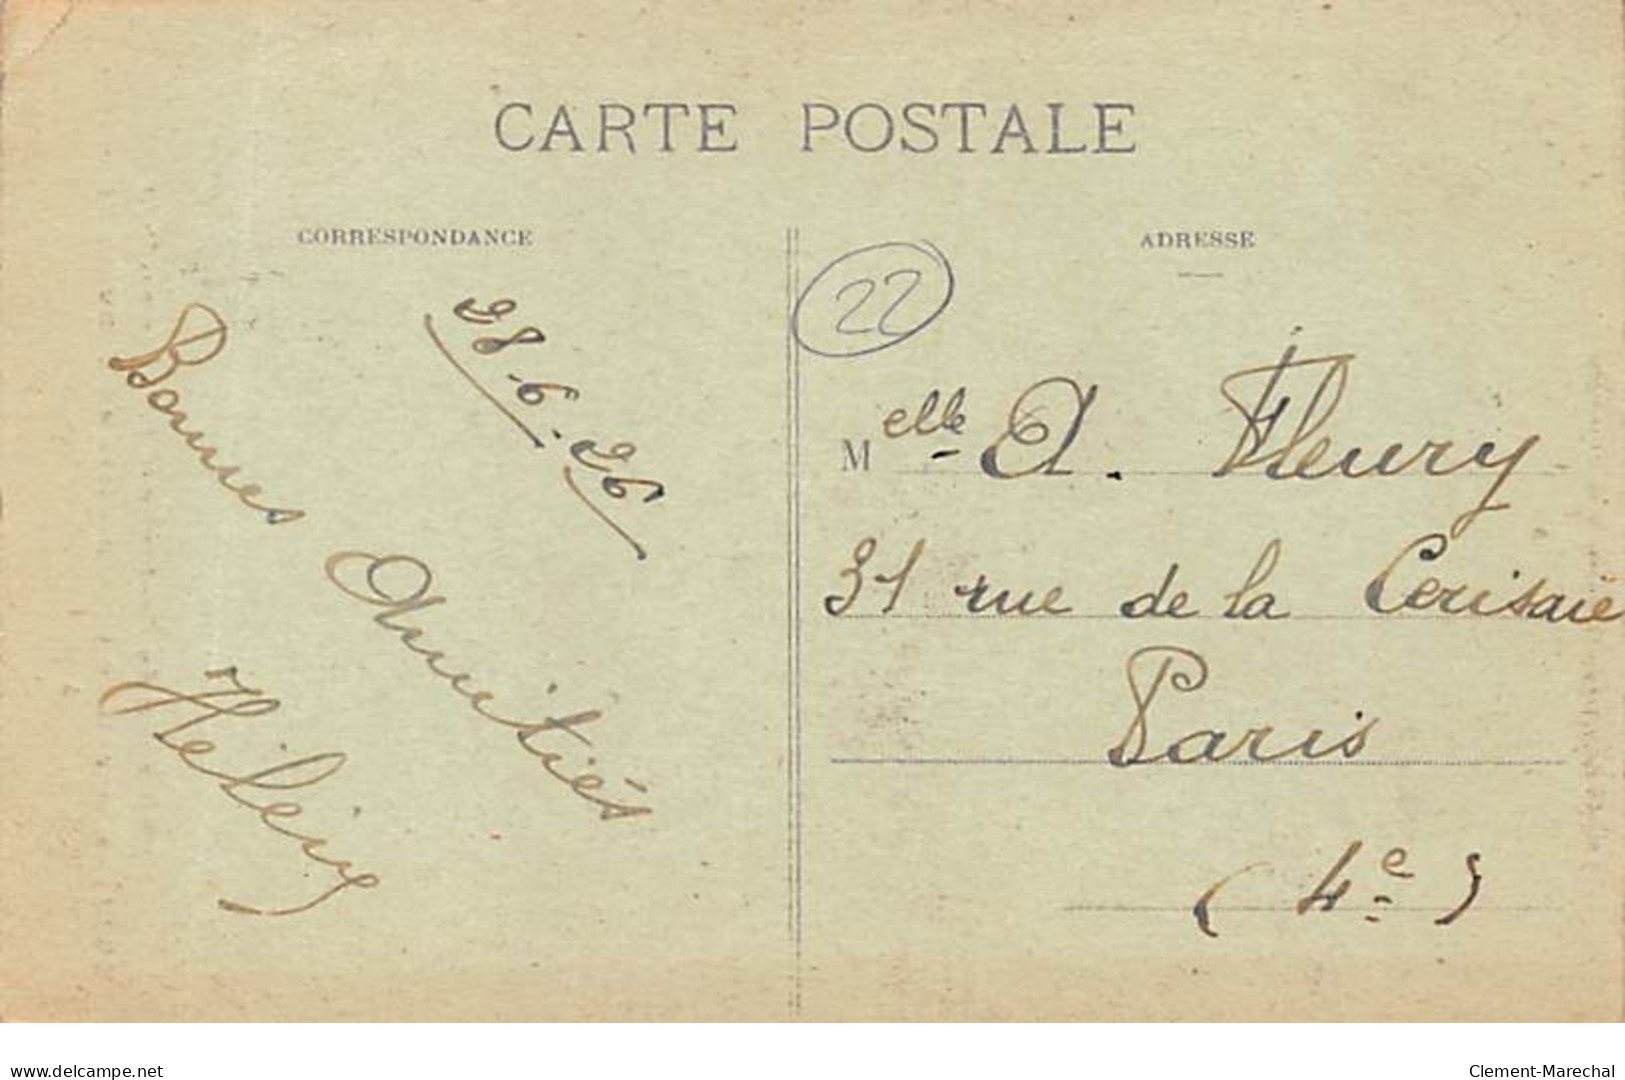 CARTE POSTALE
CORRESPONDANCE
ADRESSE
22
28-6-26
Bonnes
Amitiés
M elle A. Fleury
31 rue de la Cerisaie
Paris
(4e)
delcampe.net
Clement-Marechal